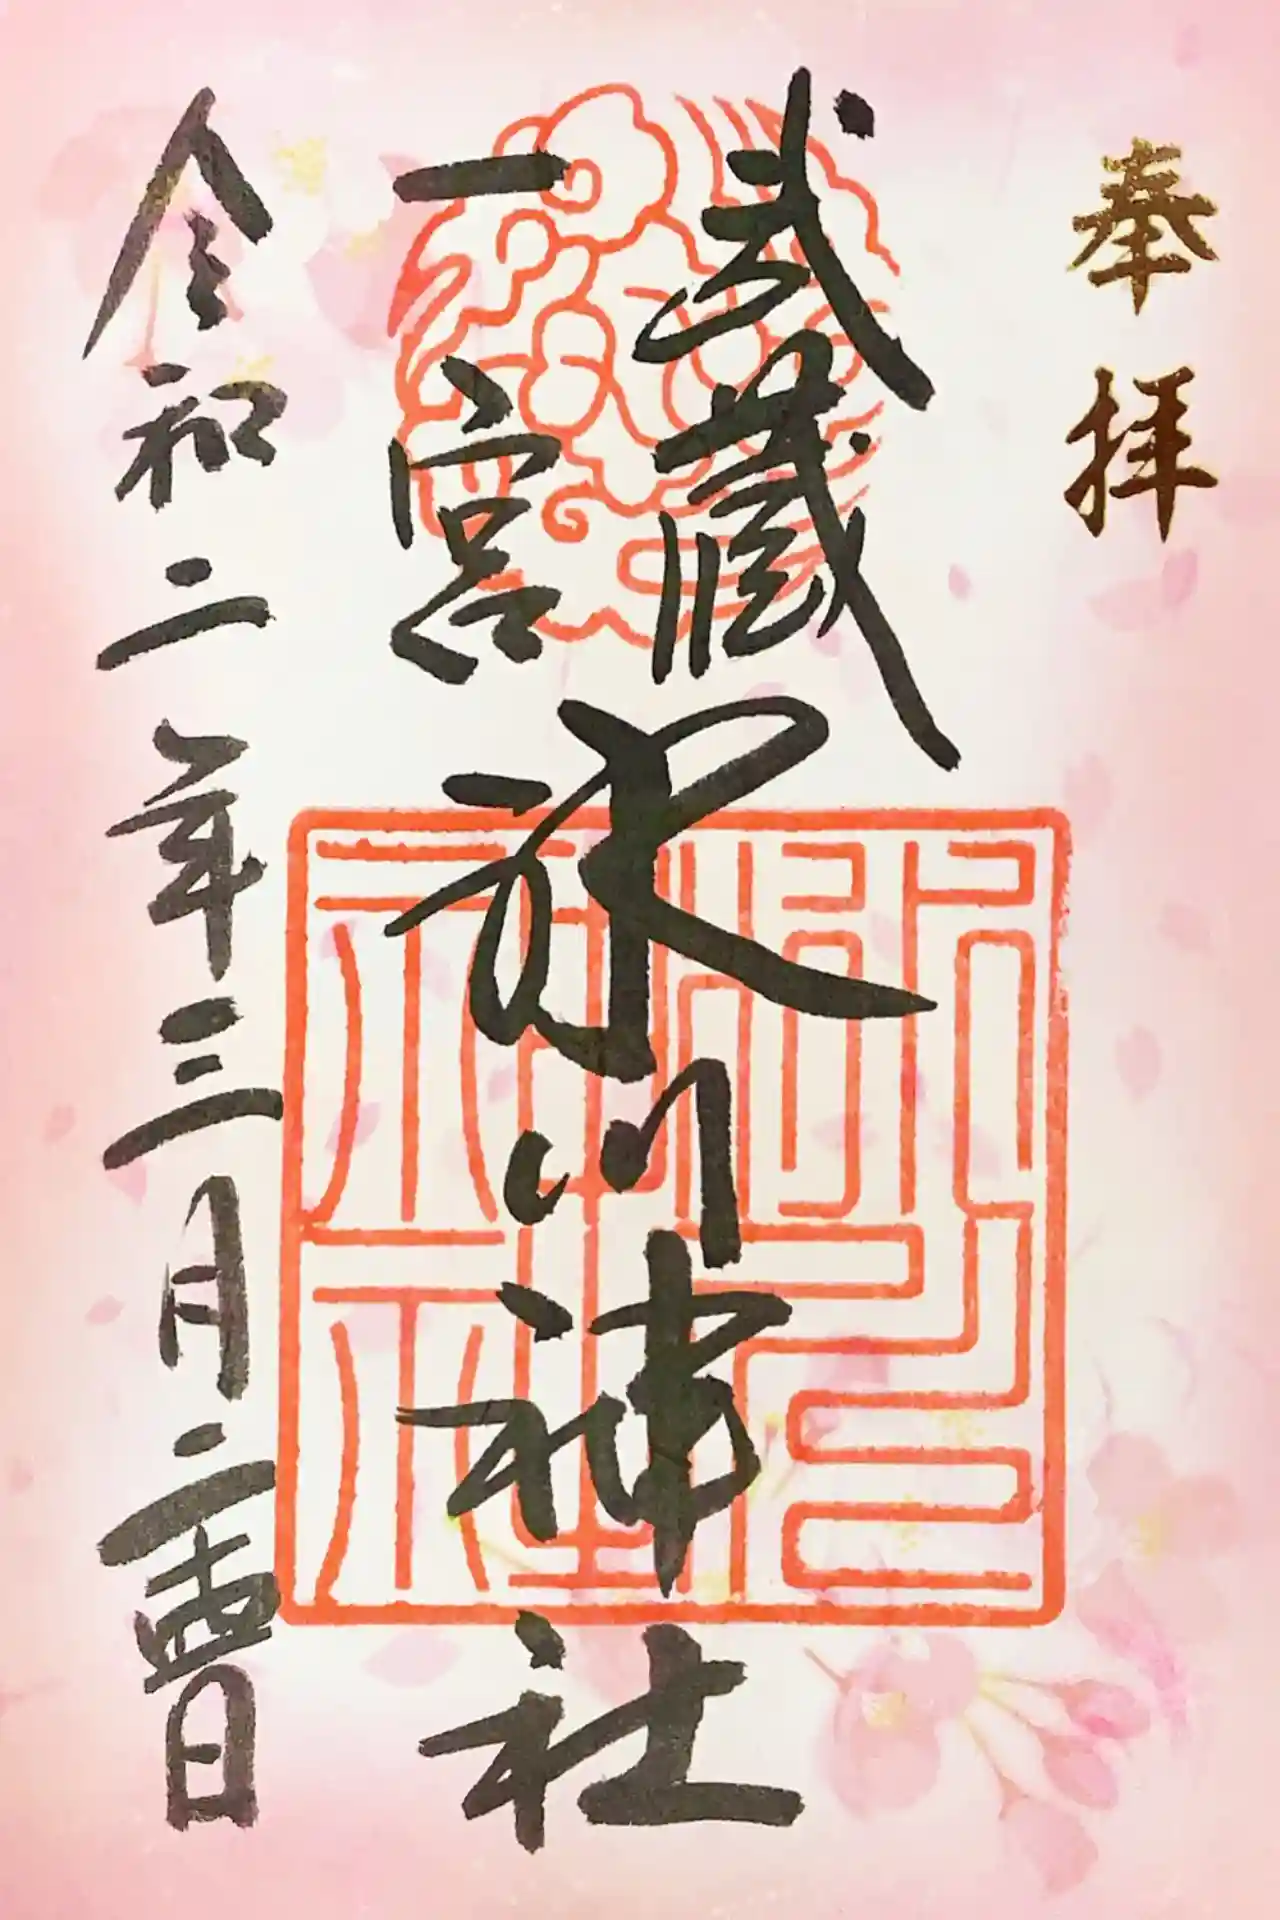 奉拝
武蔵
一宮
氷川神社
氷川神社
令和二年三月二十四日